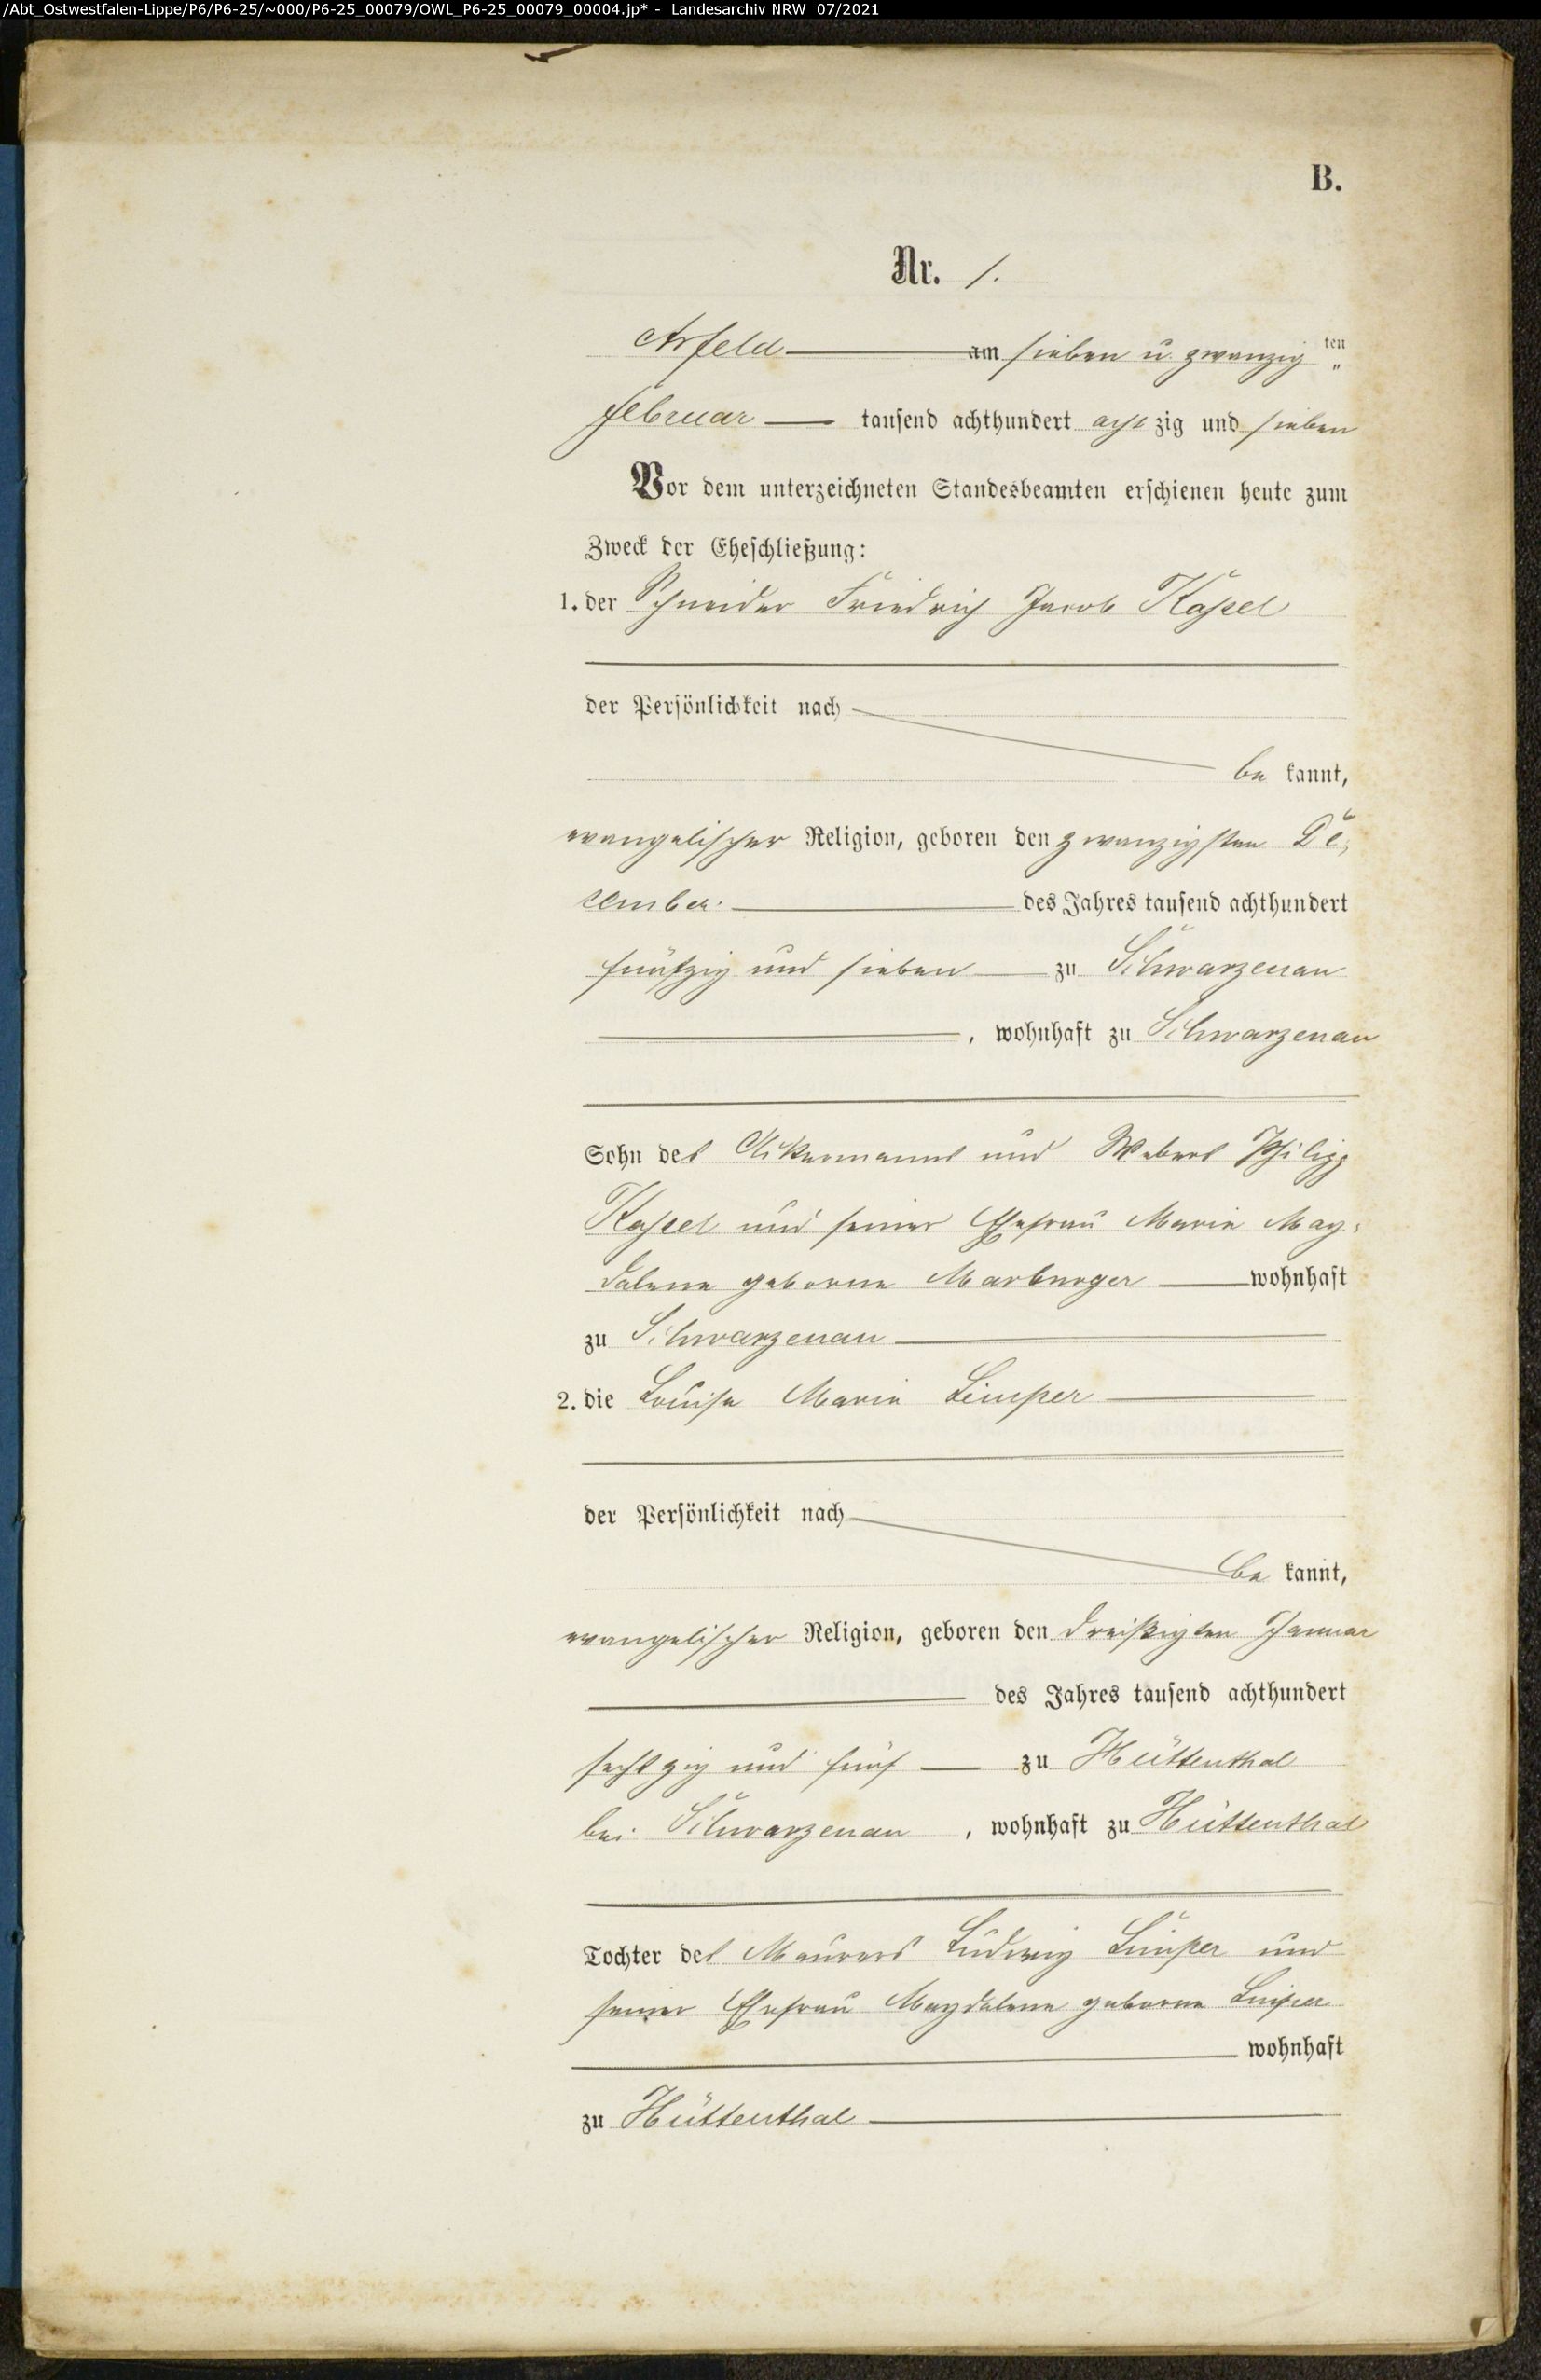 /Abt_Ostwestfalen-Lippe/P6/P6-25/~000/P6-25_00079/OWL_P6-25_00079_00004.jp* - Landesarchiv NRW 07/2021
B.
Nr. 1.
Arfeld am sieben u. zwanzig ten
Februar tausend achthundert acht zig und sieben
Vor dem unterzeichneten Standesbeamten erschienen heute zum
Zweck der Eheschließung:
1. der Schneider Friedrich Jacob
der Persönlichkeit nach
be kannt,
evangelischer Religion, geboren den zwanzigsten De-
cember des Jahres tausend achthundert
fünfzig und sieben zu Schwarzenau
, wohnhaft zu Schwarzenau
Sohn des Ackermanns und Webers Philipp
und seiner Ehefrau Marie Mag-
dalene geborne Marburger wohnhaft
zu Schwarzenau
2. die Louise Marie Limper
der Persönlichkeit nach
be kannt,
evangelischer Religion, geboren den dreißigsten Januar
des Jahres tausend achthundert
sechszig und fünf zu Hüttenthal
bei Schwarzenau , wohnhaft zu Hüttenthal
Tochter des Maurers Ludwig Limper und
seiner Ehefrau Magdalene geborne
wohnhaft
zu Hüttenthal